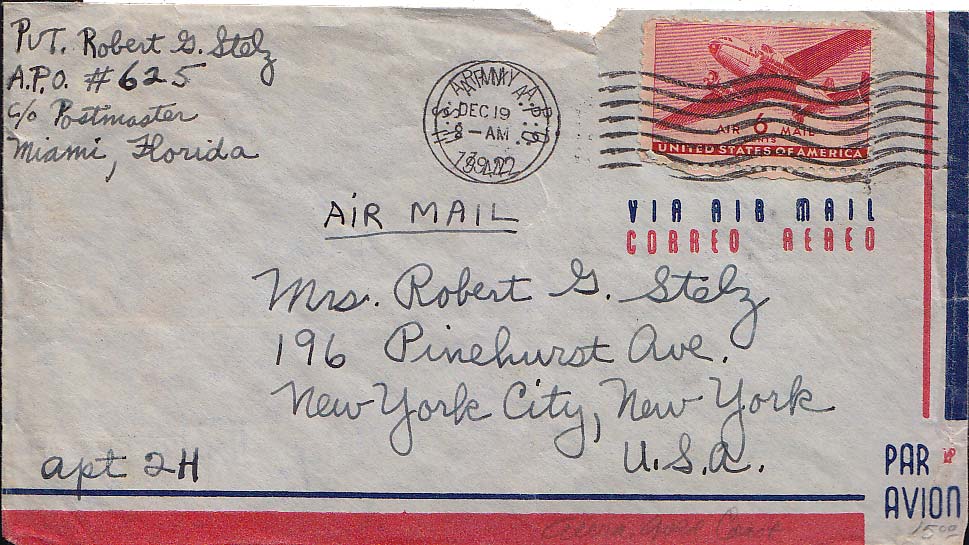 Pvt. Robert G. Stelz
A.P.O. #625
c/o Postmaster
Miami, Florida
U.S. ARMY A.P.O.
DEC 19
8 – AM
AIR 6 MAIL
CENTS
UNITED STATES OF AMERICA
VIA AIR MAIL
CORREO AEREO
AIR MAIL
Mrs. Robert G. Stelz
196 Pinehurst Ave.
New York City, New York
U.S.A.
apt 2H
PAR
AVION
Gold Coast
1500